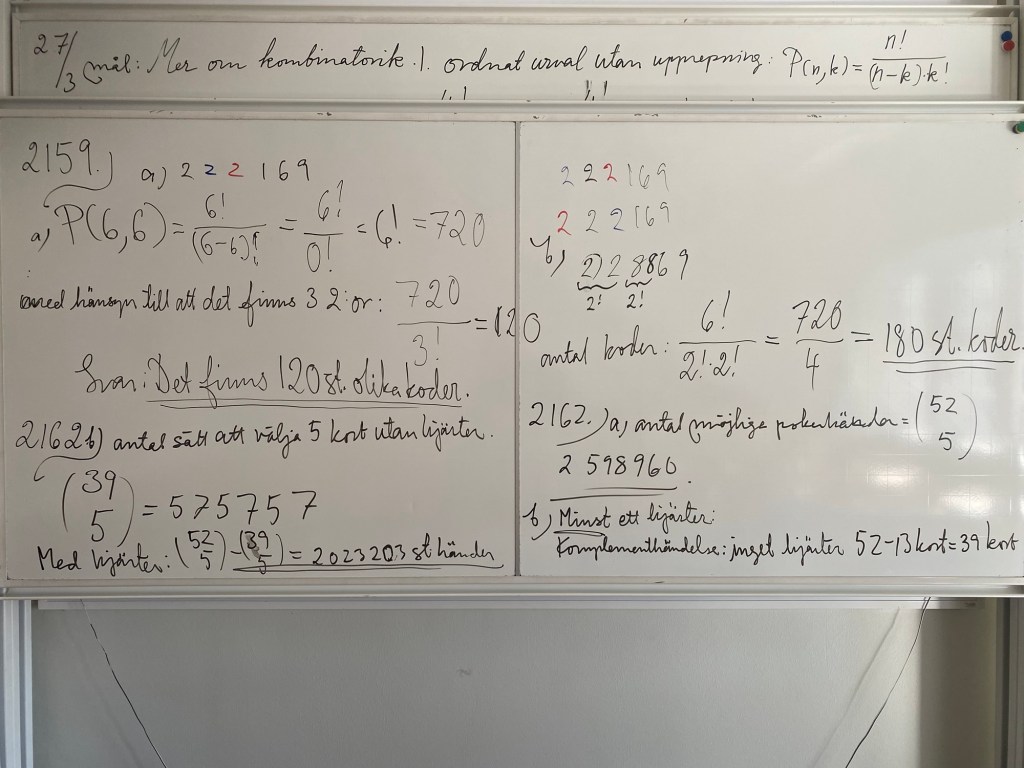 27/3 mål: Mer om kombinatorik. 1. ordnat urval utan upprepning: P(n,k) = n!/(n-k)·k!
2159.) a) 2 2 2 1 6 9
a) P(6,6) = 6!/(6-6)! = 6!/0! = 6! = 720
med hänsyn till att det finns 3 2:or: 720/3! = 120
Svar: Det finns 120 st. olika koder.
2162 b) antal sätt att välja 5 kort utan hjärter.
(39 5) = 575757
Med hjärter: (52 5) - (39 5) = 2023203 st händer
2 2 2 1 6 9
2 2 2 1 6 9
b) 2 2 8 8 6 9
2! 2!
antal koder: 6!/2!·2! = 720/4 = 180 st. koder.
2162.) a) antal möjliga pokerhänder = (52 5)
2 598960.
b) Minst ett hjärter:
Komplementhändelse: inget hjärter 52-13 kort = 39 kort